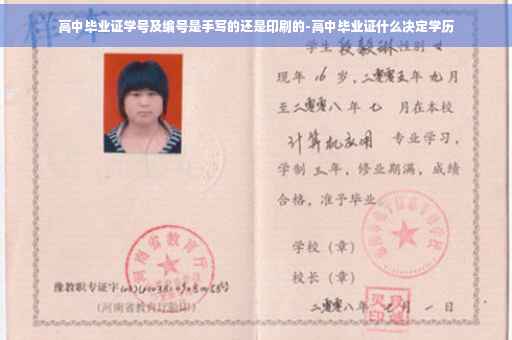 高中毕业证学号及编号是手写的还是印刷的-高中毕业证什么决定学历
样本
学生 段毅琳 性别 女
现年 16 岁，二零零五年 九月
至二零零八年 七 月在本校
计算机应用 专业学习，
学制 三年，修业期满，成绩
合格，准予毕业
学校（章）
校长（章）
二零零八年 七月 一日
河南省教育厅
豫教职专证字
（河南省教育厅验印）